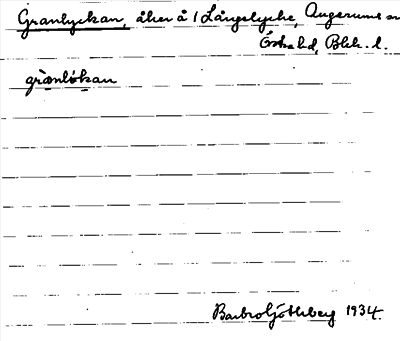 Granlyckan, åker å 1 Långelycke, Augerums sn
Östra hd, Blek. l.
grànlökan
Barbro Götheberg 1934.